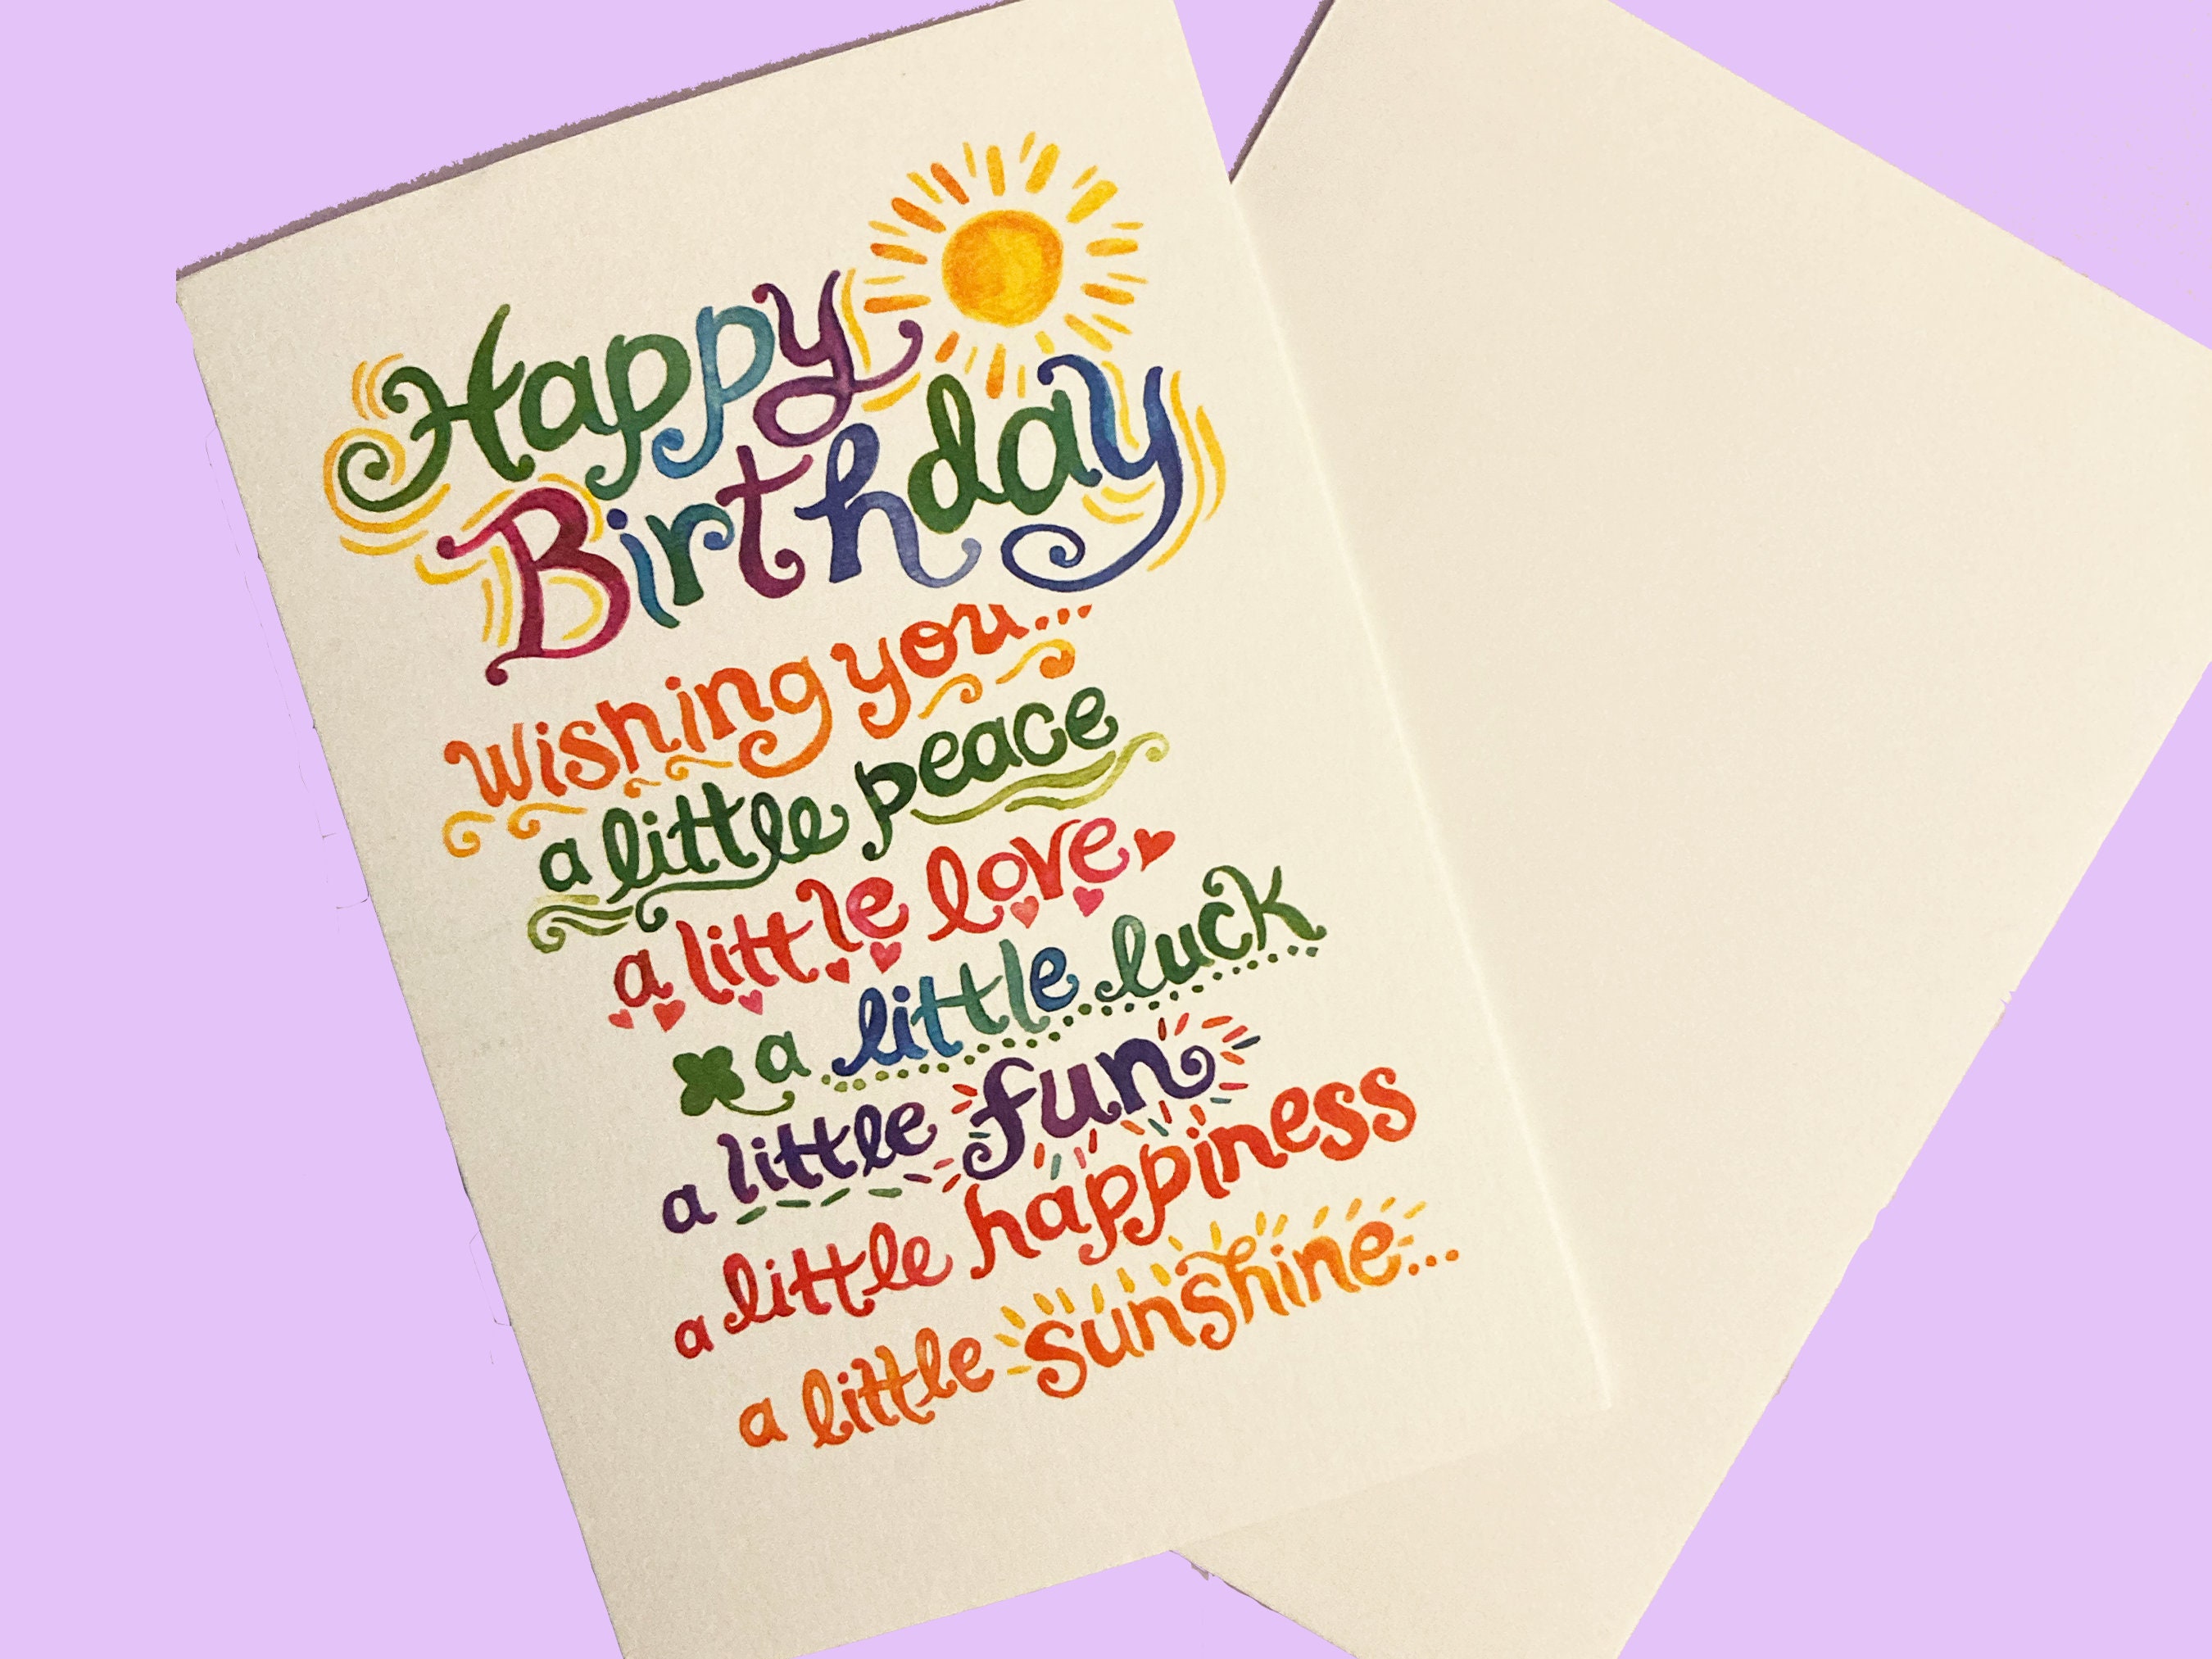 Happy
Birthday
wishing you...
a little peace
a little love
a little luck
a little fun
a little happiness
a little sunshine...